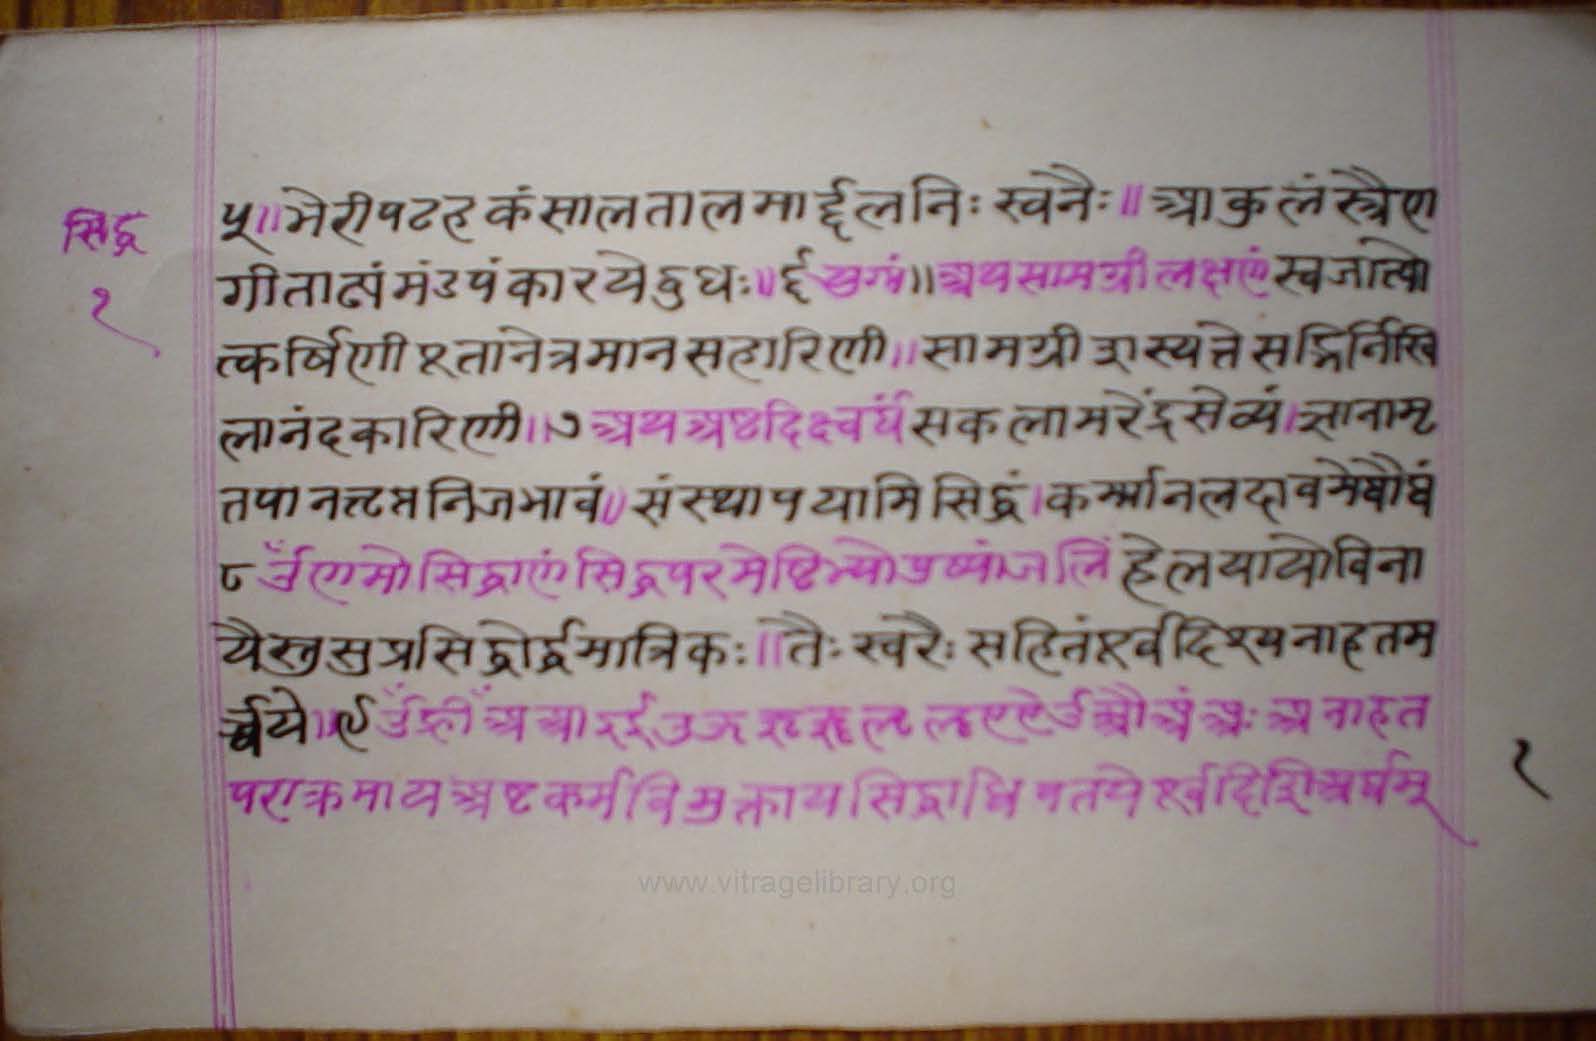 सिद्ध
१
५॥भेरीपटहकंसालतालमार्द्दलनिः स्वनैः॥ आकुलं स्त्रैण
गीताढ्यं मंडपं कारयेद्बुधः॥६ युग्मं॥अथसामग्रीलक्षणं स्वजात्यो
त्कर्षिणी पूतानेत्रमानसहारिणी॥सामग्री शस्यते सद्भिर्निखि
लानंदकारिणी॥७ अथअष्टदिक्ष्वर्घं सकलामरेंद्रसेव्यं।ज्ञानामृ
तपानतृप्तनिजभावं॥संस्थापयामि सिद्धं।कर्म्मानलदावमेघौघं
८ ॐ णमो सिद्धाणं सिद्धपरमेष्टिभ्यो पुष्पांजलिं हेलया यो विना
यैस्तु सुप्रसिद्धोर्द्धमात्रिकः॥तैः स्वरैः सहितं पूर्वदिश्यनाहतम
र्च्चये॥९ ॐ ह्रीँ अ आ इ ई उ ऊ ऋ ॠ ऌ ॡ ए ऐ ओ औ अं अः अनाहत
पराक्रमाय अष्टकर्मविमुक्ताय सिद्धाधिपतये पूर्वदिशि अर्घम्
१
www.vitragelibrary.org